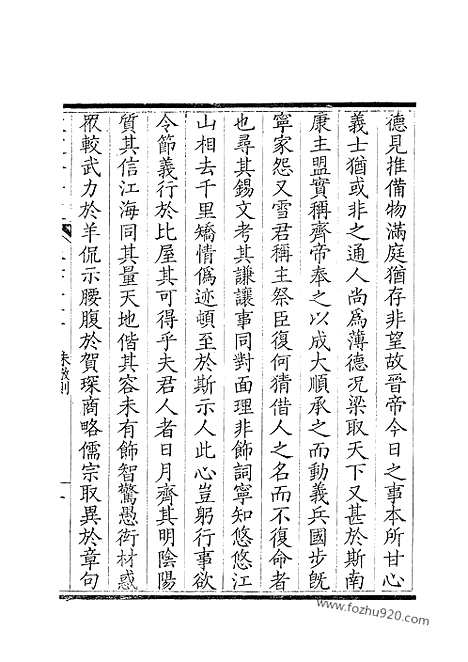 德見推備物滿庭猶存非望故晉帝今日之事本所甘心
義士猶或非之通人尚爲薄德况梁取天下又甚於斯南
康主盟實稱齊帝奉之以成大順承之而動義兵國步旣
寧家怨又雪君稱主祭臣復何猜借人之名而不復命者
也尋其錫文考其謙讓事同對面理非飾詞寧知悠悠江
山相去千里矯情僞迹頓至於斯示人此心豈躬行事欲
令節義行於比屋其可得乎夫君人者日月齊其明陰陽
質其信江海同其量天地偕其容未有飾智驚愚衒材惑
眾較武力於羊侃示腰腹於賀琛商略儒宗取異於章句
www.fozhu920.com